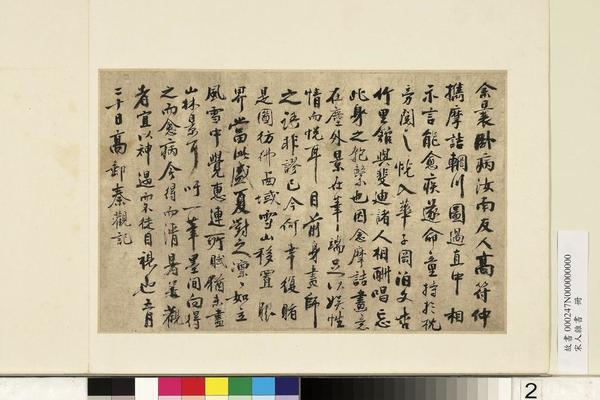 余曩卧病汝南友人高符仲
攜摩詰輞川圖過直中相
示言能愈疾遂命童持於枕
旁閱之恍入華子岡泊文杏
竹里館與斐迪諸人相酬唱忘
此身之匏繫也因念摩詰畫意
在塵外景在筆端足以娛性
情而悅耳目前身畫師
之語非謬已今何幸復睹
是圖彷彿西域雪山移置眼
界當此盛夏對之凜凜如立
風雪中覺惠連所賦猶未盡
山林景耳吁一筆墨間向得
之而愈病今得而清暑善觀
者宜以神遇而不徒目視也五月
二十日高郵秦觀記
故書000247N000000000
宋人雜書 冊
2